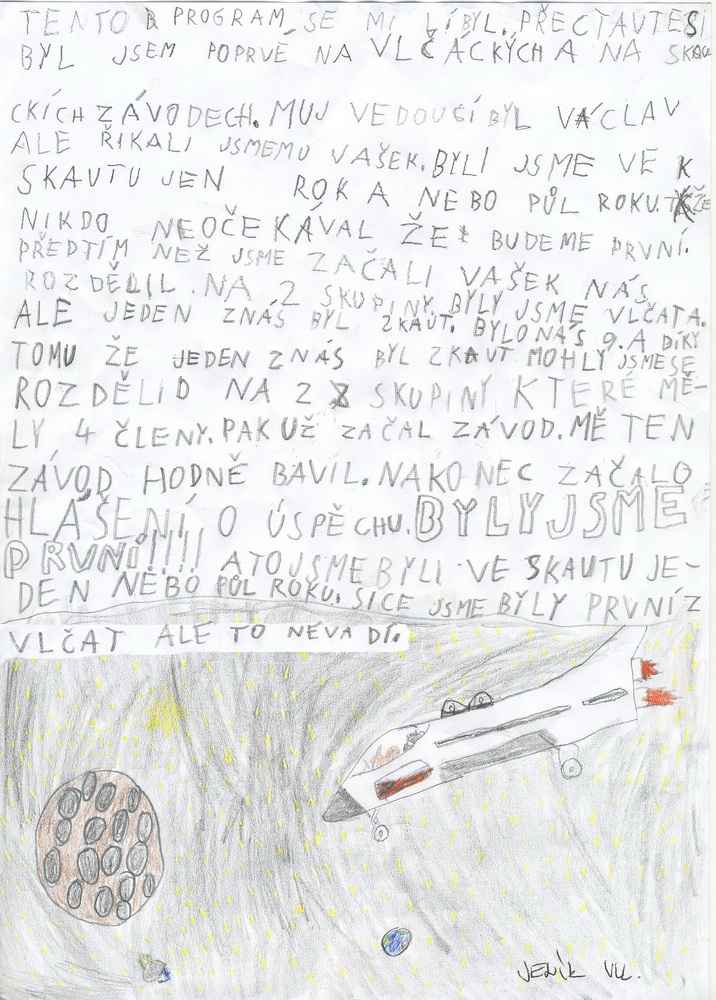 TENTO PROGRAM SE MI LÍBYL. PŘECTAVTESI
BYL JSEM POPRVÉ NA VLČÁCKÝCH A NA SKAU
CKÍCH ZÁVODECH. MUJ VEDOUCÍ BYL VÁCLAV
ALE ŘIKALI JSMEMU VAŠEK. BYLI JSME VE
SKAUTU JEN ROK A NEBO PŮL ROKU. TKŽE
NIKDO NEOČEKÁVAL ŽE BUDEME PRVNÍ.
PŘEDTÍM NEŽ JSME ZAČALI VAŠEK NÁS
ROZDĚLIL. NA 2 SKUPINY. BYLY JSME VLČATA.
ALE JEDEN ZNÁS BYL ZKAUT. BYLO NÁS 9. A DÍKY
TOMU ŽE JEDEN ZNÁS BYL ZKAUT MOHLY JSMESE
ROZDĚLID NA 2 SKUPINY KTERÉ MĚ-
LY 4 ČLENY. PAK UŽ ZAČAL ZÁVOD. MĚ TEN
ZÁVOD HODNĚ BAVIL. NAKONEC ZAČALO
HLÁŠENÍ O ÚSPĚCHU. BYLY JSME
PRVNÍ!!!! ATO JSME BYLI VE SKAUTU JE-
DEN NEBO PŮL ROKU. SICE JSME BYLY PRVNÍ Z
VLČAT ALE TO NEVADÍ.
JENÍK VU.